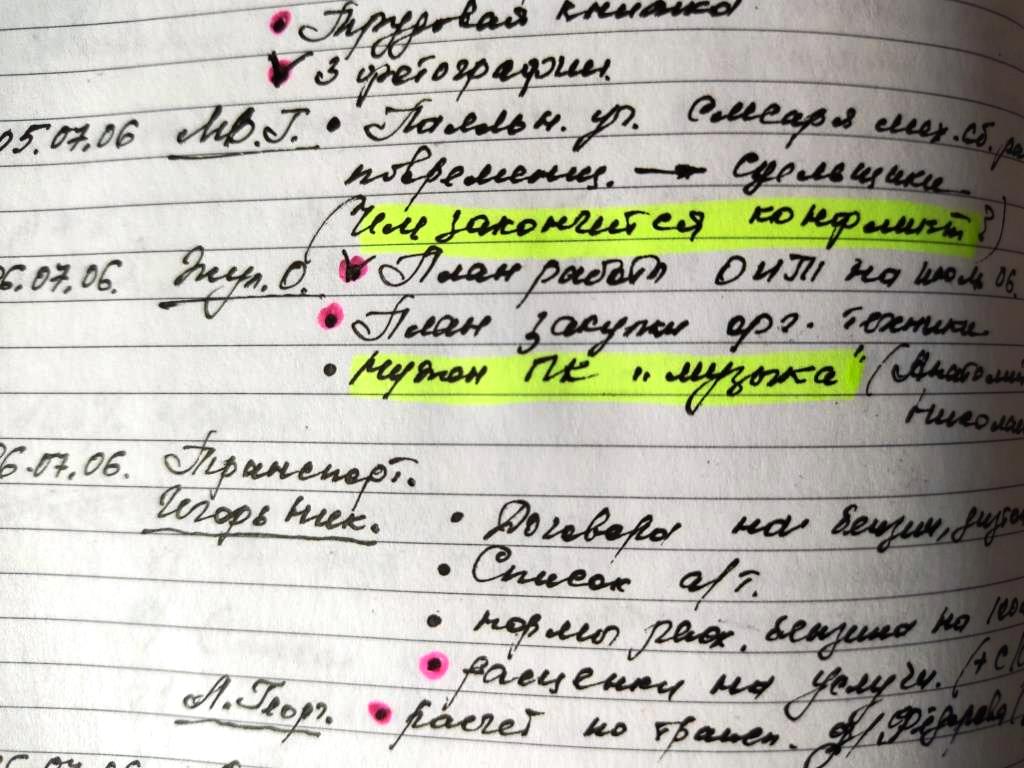 • Трудовая книжка
3 фотографии.
05.07.06 М.В.Г. • Паяльн. уч. Слесаря мех.сб.
повременщ. → сдельщики
(Чем закончится конфликт?)
6.07.06. Жур. О. План работ ОИТ на июль 06.
• План закупки орг. техники
• Нужен ПК "музыка" (Анатолий
Николай
6.07.06. Транспорт.
Игорь Ник. • Договора на бензин,
• Список а/т.
• нормы расх. бензина на 100
• расценки на услуги. (+С
А. Георг. • расчет по трансп. д/Фёдорова